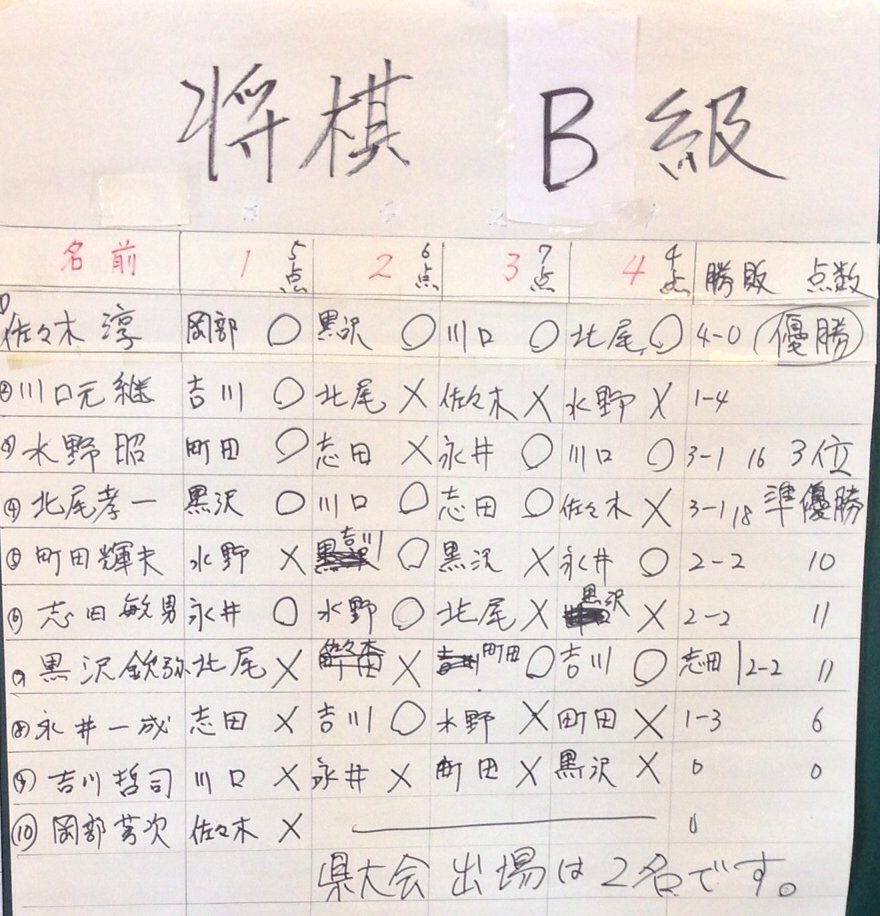 将棋 B級
名前 1 5点 2 6点 3 7点 4 4点 勝敗 点数
① 佐々木 淳 岡部 ○ 黒沢 ○ 川口 ○ 北尾 ○ 4-0 優勝
② 川口元継 吉川 ○ 北尾 × 佐々木 × 水野 × 1-4
③ 水野昭 町田 ○ 志田 × 永井 ○ 川口 ○ 3-1 16 3位
④ 北尾孝一 黒沢 ○ 川口 ○ 志田 ○ 佐々木 × 3-1 18 準優勝
⑤ 町田輝夫 水野 × 吉川 ○ 黒沢 × 永井 ○ 2-2 10
⑥ 志田敏男 永井 ○ 水野 ○ 北尾 × 黒沢 × 2-2 11
⑦ 黒沢欽弥 北尾 × 佐々木 × 町田 ○ 吉川 ○ 志田 2-2 11
⑧ 永井一成 志田 × 吉川 ○ 水野 × 町田 × 1-3 6
⑨ 吉川哲司 川口 × 永井 × 町田 × 黒沢 × 0 0
⑩ 岡部 次 佐々木 × 0
県大会出場は2名です。